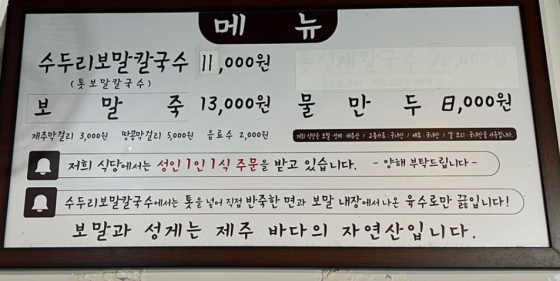 메 뉴
수두리보말칼국수 11,000원
(톳보말칼국수)
보 말 죽 13,000원 물 만 두 8,000원
제주막걸리 3,000원 땅콩막걸리 5,000원 음료수 2,000원
저희 식당에서는 성인 1인 1식 주문을 받고 있습니다. - 양해 부탁드립니다 -
수두리보말칼국수에서는 톳을 넣어 직접 반죽한 면과 보말 내장에서 나온 육수로만 끓입니다!
보말과 성게는 제주 바다의 자연산입니다.